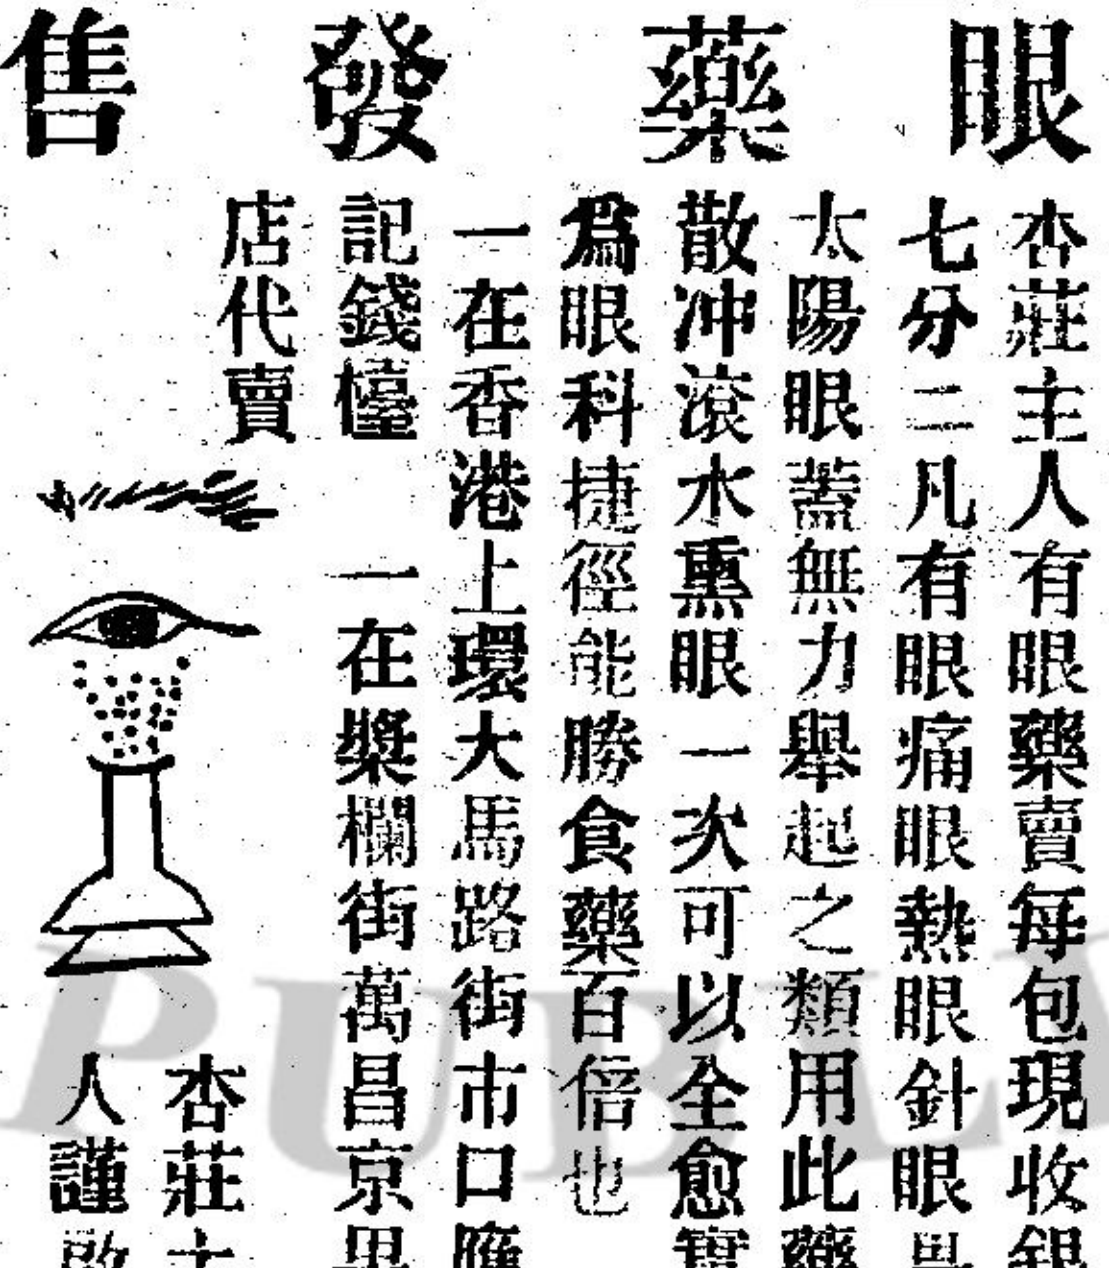 眼藥發售
杏莊主人有眼藥賣每包現收銀
七分二凡有眼痛眼熱眼針眼
太陽眼蓋無力舉起之類用此藥
散冲滾水熏眼一次可以全愈實
爲眼科捷徑能勝食藥百倍也
一在香港上環大馬路街市口匯
記錢檯 一在槳欄街萬昌京果
店代賣
杏莊主
人謹啟
PUBL